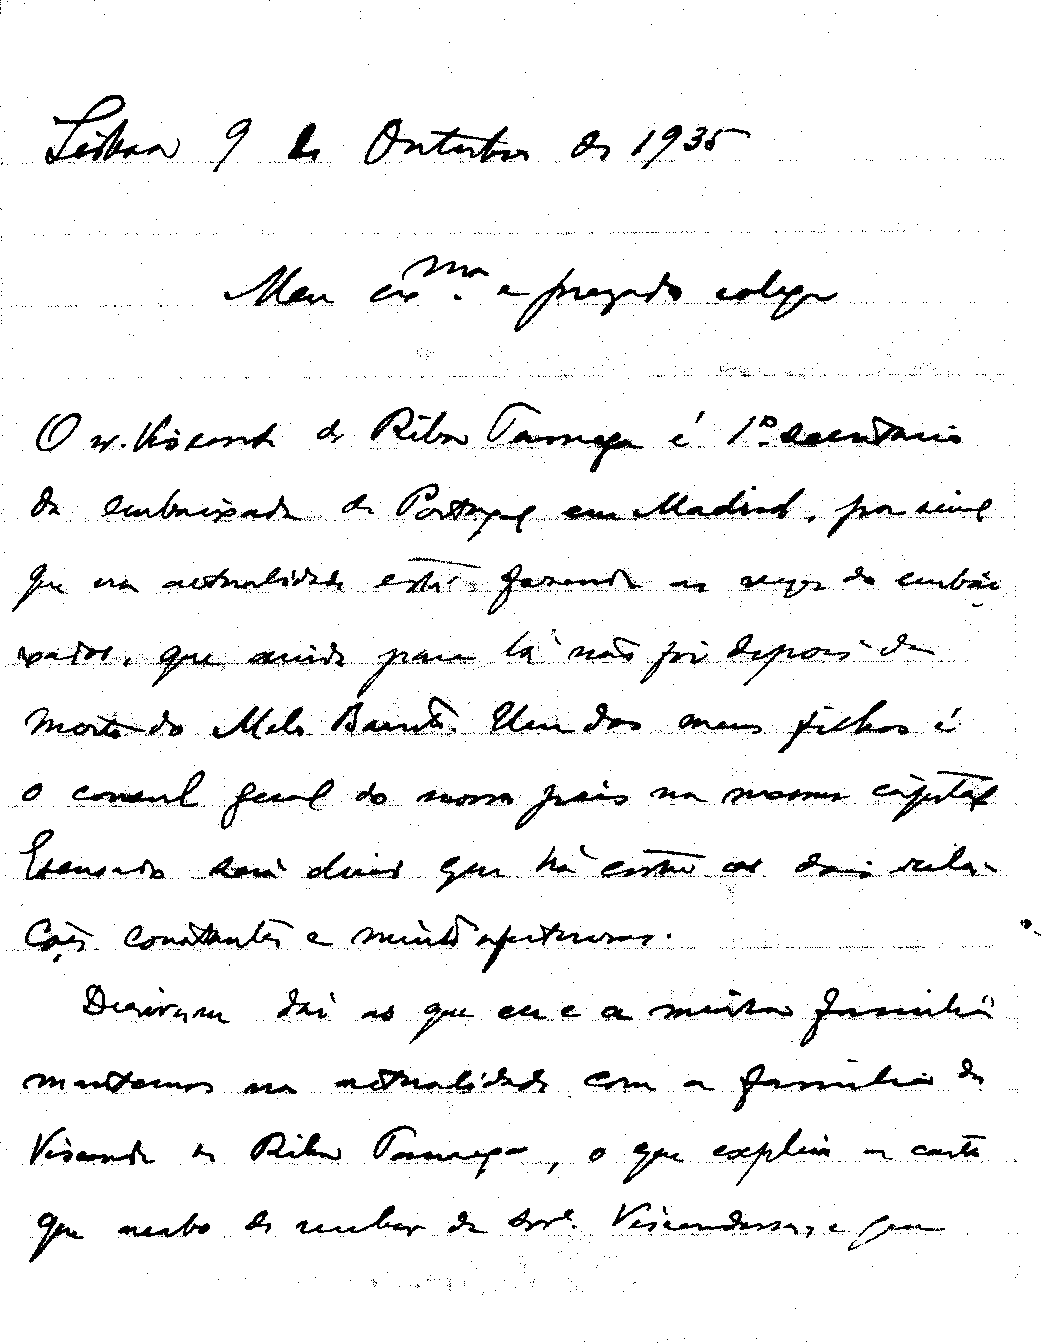 Lisboa 9 de Outubro de 1935
Meu exmo. e prezado colega
O sr. Visconde de Riba Tamega é 1º secretario
da embaixada de Portugal em Madrid, por sinal
que na actualidade está fazendo as vezes do embai-
xador, que ainda para lá não foi depois da
morte do Melo Barreto. Um dos meus filhos é
o consul geral do nosso país na mesma capital
Escusado será dizer que há entre os dois rela-
ções constantes e muito afectuosas.
Derivam daí as que eu e a minha familia
mantemos na actualidade com a familia do
Visconde de Riba Tamega, o que explica a carta
que acabo de receber da Snrª. Viscondessa, e que